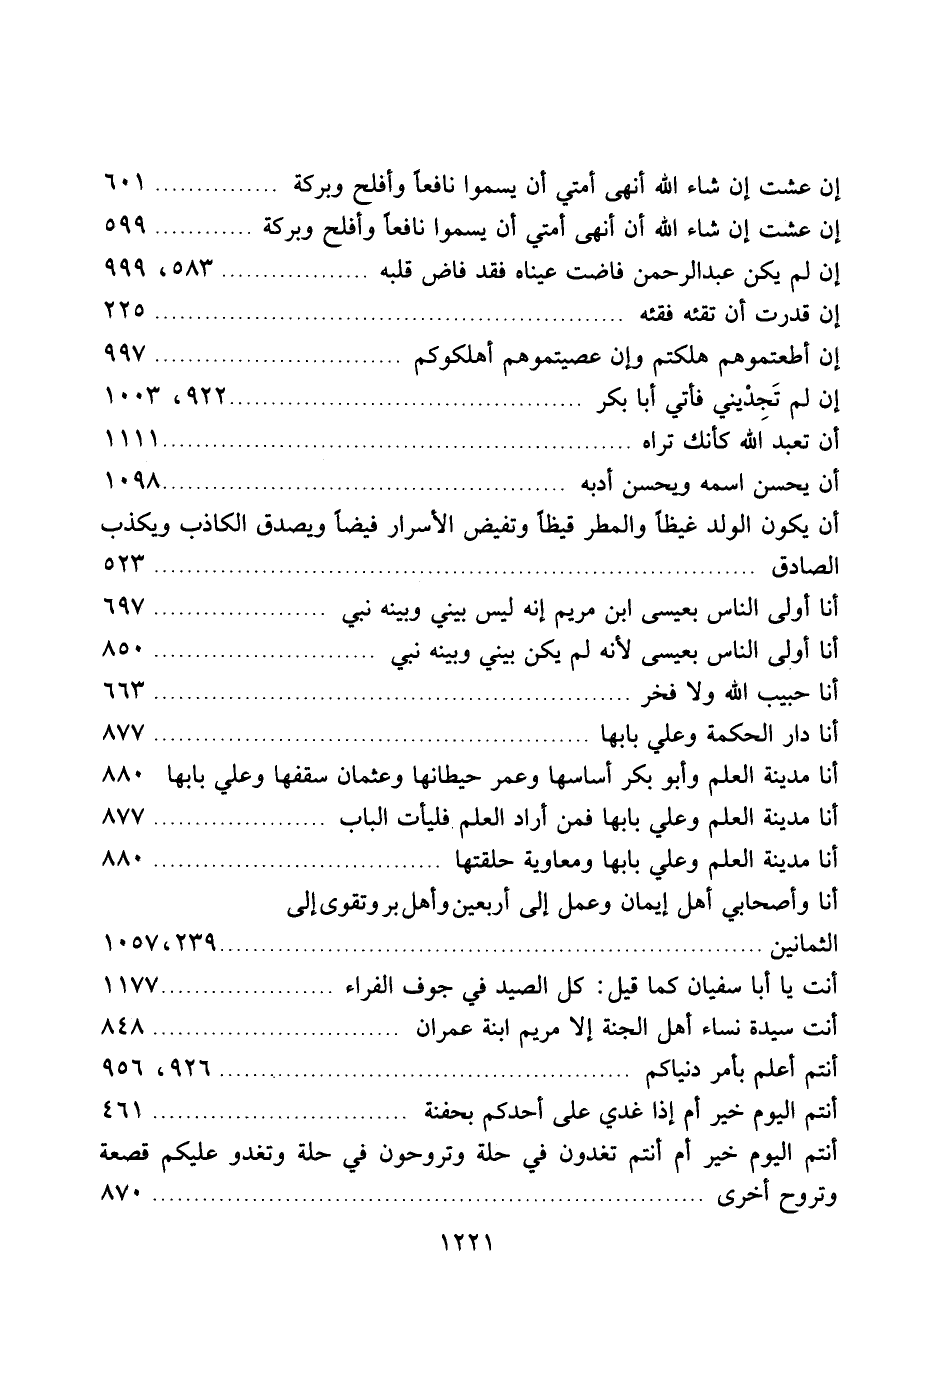 إن عشت إن شاء الله أنهى أمتي أن يسموا نافعاً وأفلح وبركة ............... ٦٠١
إن عشت إن شاء الله أن أنهى أمتي أن يسموا نافعاً وأفلح وبركة ............ ٥٩٩
إن لم يكن عبدالرحمن فاضت عيناه فقد فاض قلبه .................. ٥٨٣، ٩٩٩
إن قدرت أن تقئه فقئه ........................................................ ٢٢٥
إن أطعتموهم هلكتم وإن عصيتموهم أهلكوكم .............................. ٩٩٧
إن لم تَجِدْيني فأتي أبا بكر ...........................................٩٢٢، ١٠٠٣
أن تعبد الله كأنك تراه .........................................................١١١١
أن يحسن اسمه ويحسن أدبه .................................................١٠٩٨
أن يكون الولد غيظاً والمطر قيظاً وتفيض الأسرار فيضاً ويصدق الكاذب ويكذب
الصادق ......................................................................... ٥٢٣
أنا أولى الناس بعيسى ابن مريم إنه ليس بيني وبينه نبي ..................... ٦٩٧
أنا أولى الناس بعيسى لأنه لم يكن بيني وبينه نبي ........................... ٨٥٠
أنا حبيب الله ولا فخر .......................................................... ٦٦٣
أنا دار الحكمة وعلي بابها ..................................................... ٨٧٧
أنا مدينة العلم وأبو بكر أساسها وعمر حيطانها وعثمان سقفها وعلي بابها ٨٨٠
أنا مدينة العلم وعلي بابها فمن أراد العلم فليأت الباب ..................... ٨٧٧
أنا مدينة العلم وعلي بابها ومعاوية حلقتها ................................... ٨٨٠
أنا وأصحابي أهل إيمان وعمل إلى أربعين وأهل بر وتقوى إلى
الثمانين ..................................................................٢٣٩، ١٠٥٧
أنت يا أبا سفيان كما قيل: كل الصيد في جوف الفراء .....................١١٧٧
أنت سيدة نساء أهل الجنة إلا مريم ابنة عمران .............................. ٨٤٨
أنتم أعلم بأمر دنياكم .................................................. ٩٢٦، ٩٥٦
أنتم اليوم خير أم إذا غدي على أحدكم بحفنة ............................... ٤٦١
أنتم اليوم خير أم أنتم تغدون في حلة وتروحون في حلة وتغدو عليكم قصعة
وتروح أخرى ................................................................... ٨٧٠
١٢٢١